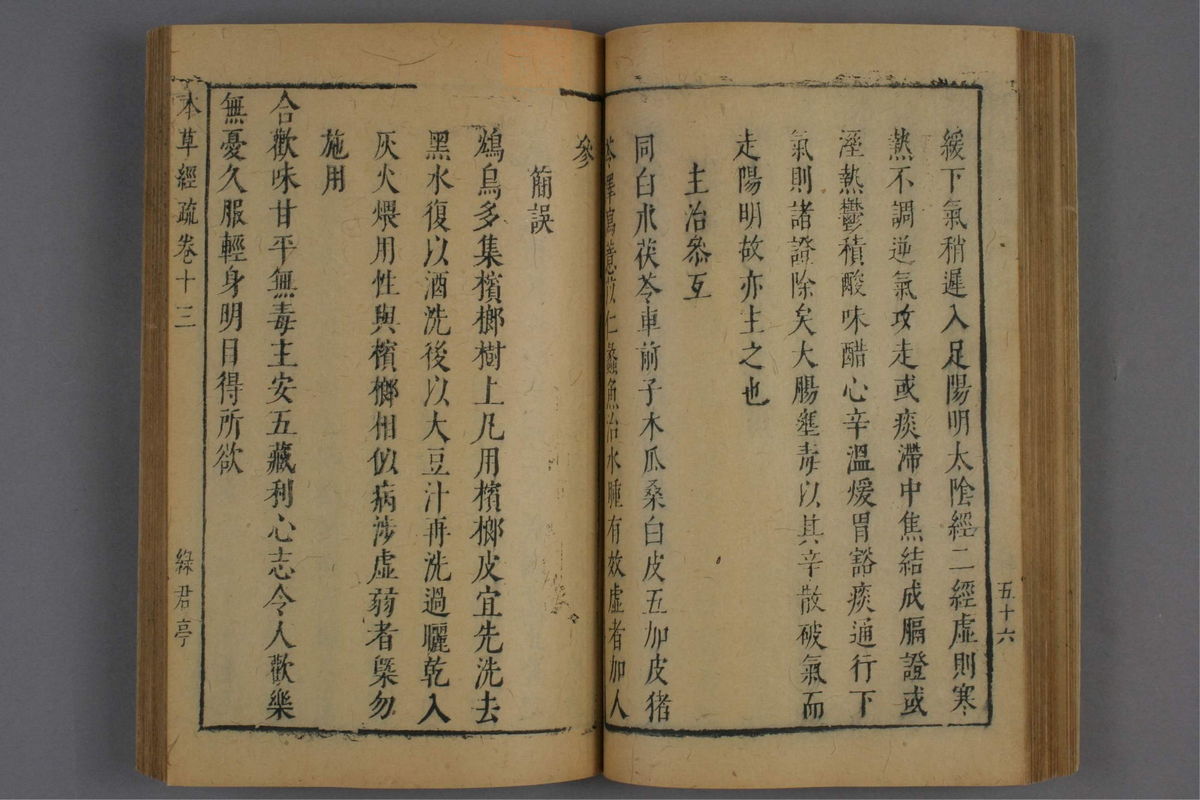 緩下氣稍遲入足陽明太陰經二經虛則寒
熱不調逆氣攻走或痰滯中焦結成膈證或
溼熱鬱積酸味醋心辛溫煖胃豁痰通行下
氣則諸證除矣大腸壅毒以其辛散破氣而
走陽明故亦主之也
主治參互
同白朮茯苓車前子木瓜桑白皮五加皮猪
苓澤瀉薏苡仁蠡魚治水腫有效虛者加人
參
簡誤
鴆鳥多集檳榔樹上凡用檳榔皮宜先洗去
黑水復以酒洗後以大豆汁再洗過曬乾入
灰火煨用性與檳榔相似病涉虛弱者槩勿
施用
合歡味甘平無毒主安五藏利心志令人歡樂
無憂久服輕身明目得所欲
本草經疏卷十三
綠君亭
五十六